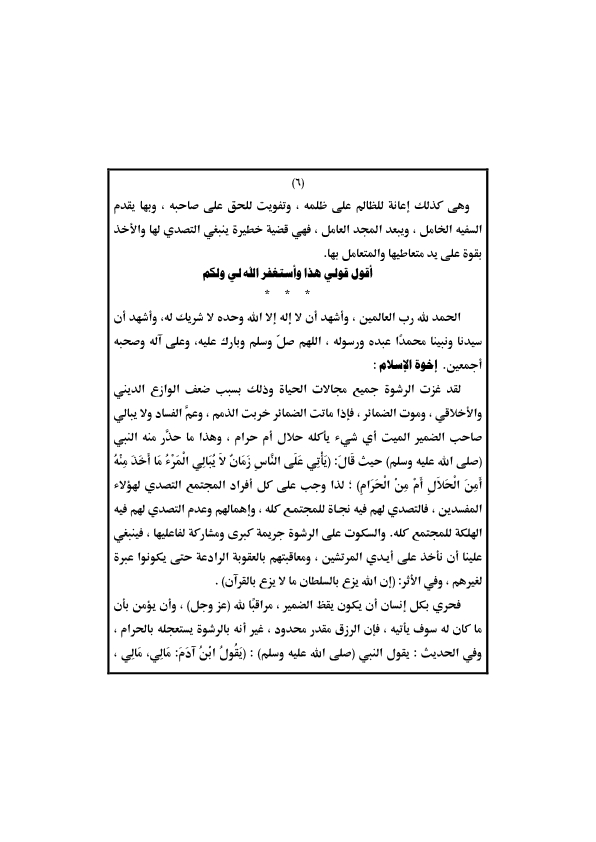 (٦)
وهى كذلك إعانة للظالم على ظلمه ، وتفويت للحق على صاحبه ، وبها يقدم
السفيه الخامل ، ويبعد المجد العامل ، فهي قضية خطيرة ينبغي التصدي لها والأخذ
بقوة على يد متعاطيها والمتعامل بها.
أقول قولي هذا وأستغفر الله لي ولكم
* * *
الحمد لله رب العالمين ، وأشهد أن لا إله إلا الله وحده لا شريك له، وأشهد أن
سيدنا ونبينا محمدًا عبده ورسوله ، اللهم صلّ وسلم وبارك عليه، وعلى آله وصحبه
أجمعين. إخوة الإسلام :
لقد غزت الرشوة جميع مجالات الحياة وذلك بسبب ضعف الوازع الديني
والأخلاقي ، وموت الضمائر ، فإذا ماتت الضمائر خربت الذمم ، وعمَّ الفساد ولا يبالي
صاحب الضمير الميت أي شيء يأكله حلال أم حرام ، وهذا ما حذَّر منه النبي
(صلى الله عليه وسلم) حيث قَالَ: (يَأْتِي عَلَى النَّاسِ زَمَانٌ لاَ يُبَالِي الْمَرْءُ مَا أَخَذَ مِنْهُ
أَمِنَ الْحَلاَلِ أَمْ مِنْ الْحَرَامِ) ؛ لذا وجب على كل أفراد المجتمع التصدي لهؤلاء
المفسدين ، فالتصدي لهم فيه نجاة للمجتمع كله ، وإهمالهم وعدم التصدي لهم فيه
الهلكة للمجتمع كله. والسكوت على الرشوة جريمة كبرى ومشاركة لفاعليها ، فينبغي
علينا أن نأخذ على أيدي المرتشين ، ومعاقبتهم بالعقوبة الرادعة حتى يكونوا عبرة
لغيرهم ، وفي الأثر: (إن الله يزع بالسلطان ما لا يزع بالقرآن) .
فحري بكل إنسان أن يكون يقظ الضمير ، مراقبًا لله (عز وجل) ، وأن يؤمن بأن
ما كان له سوف يأتيه ، فإن الرزق مقدر محدود ، غير أنه بالرشوة يستعجله بالحرام ،
وفي الحديث : يقول النبي (صلى الله عليه وسلم) : (يَقُولُ ابْنُ آدَمَ: مَالِي، مَالِي ،